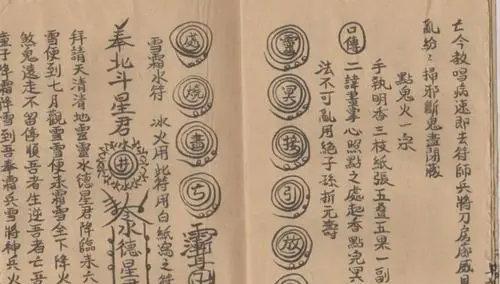 亡今教唱病速即去待師兵將刀
亂紛〻掃邪斷鬼盡閉藏
點鬼火一宗
手執明香三枝紙張五壹五果一副
口傳
二諱畫掌心照點之處起香點完冥
法不可亂用絕子孫折元壽
靈
冥
接
引
放
處
燒
盡
雪霜水符
冰火用此符用白紙寫之符
奉北斗星君
井
水德星君
拜請天清清地靈靈水德星君降臨來六
雪便到七月觀雪雪便求霜雪全下降火
煞鬼遠走不留停順吾者生逆吾者亡吾
童子降霜降雪到吾奉霜兵雪將神兵火